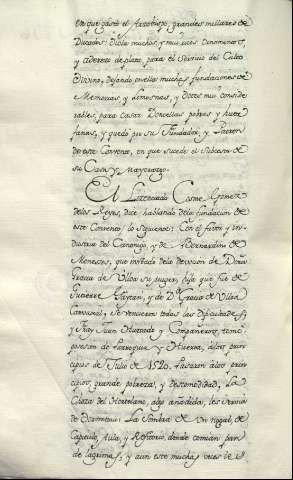 en que gastó el Arzobispo, grandes millares de
Ducados: dióla muchos, y muy ricos Ornamentos,
y adereços de plata, para el servicio del Culto
Divino, dejando en ellas muchas fundaciones de
Memorias y limosnas, y dotes muy conside
rables, para casar Doncellas pobres, y huer
fanas, y quedó por su Fundador, y Patron
de este Convento, en que sucede el Subcesor de
su Casa, y mayorazgo.
El Licenciado Cosme Gomez
de los Reyes, dice hablando de la fundacion de
este Convento, lo siguiente: Con el favor, y in
dustria del Canonigo, y de Bernardino de
Meneses, que movido de la devocion de Doña
Gracia de Ulloa su muger, hija que fue de
Gutierre y de Dª Gracia de Ulloa
Carvajal, se vencieron todas las dificultades,
y Fray Juan Hurtado y Compañeros, tomó
posesion de Parroquia y Huerta, a los prin
cipios de Julio de 1520. Pasaron a los prin
cipios, grande pobreza, y descomodidad, la
Choza del Hortelano, algo añadida, les servia
de Dormitorio: La sombra de un nogal, de
Capitulo, Aula, y Refitorio, donde comian pan
de lagrimas, y aun este muchas veces